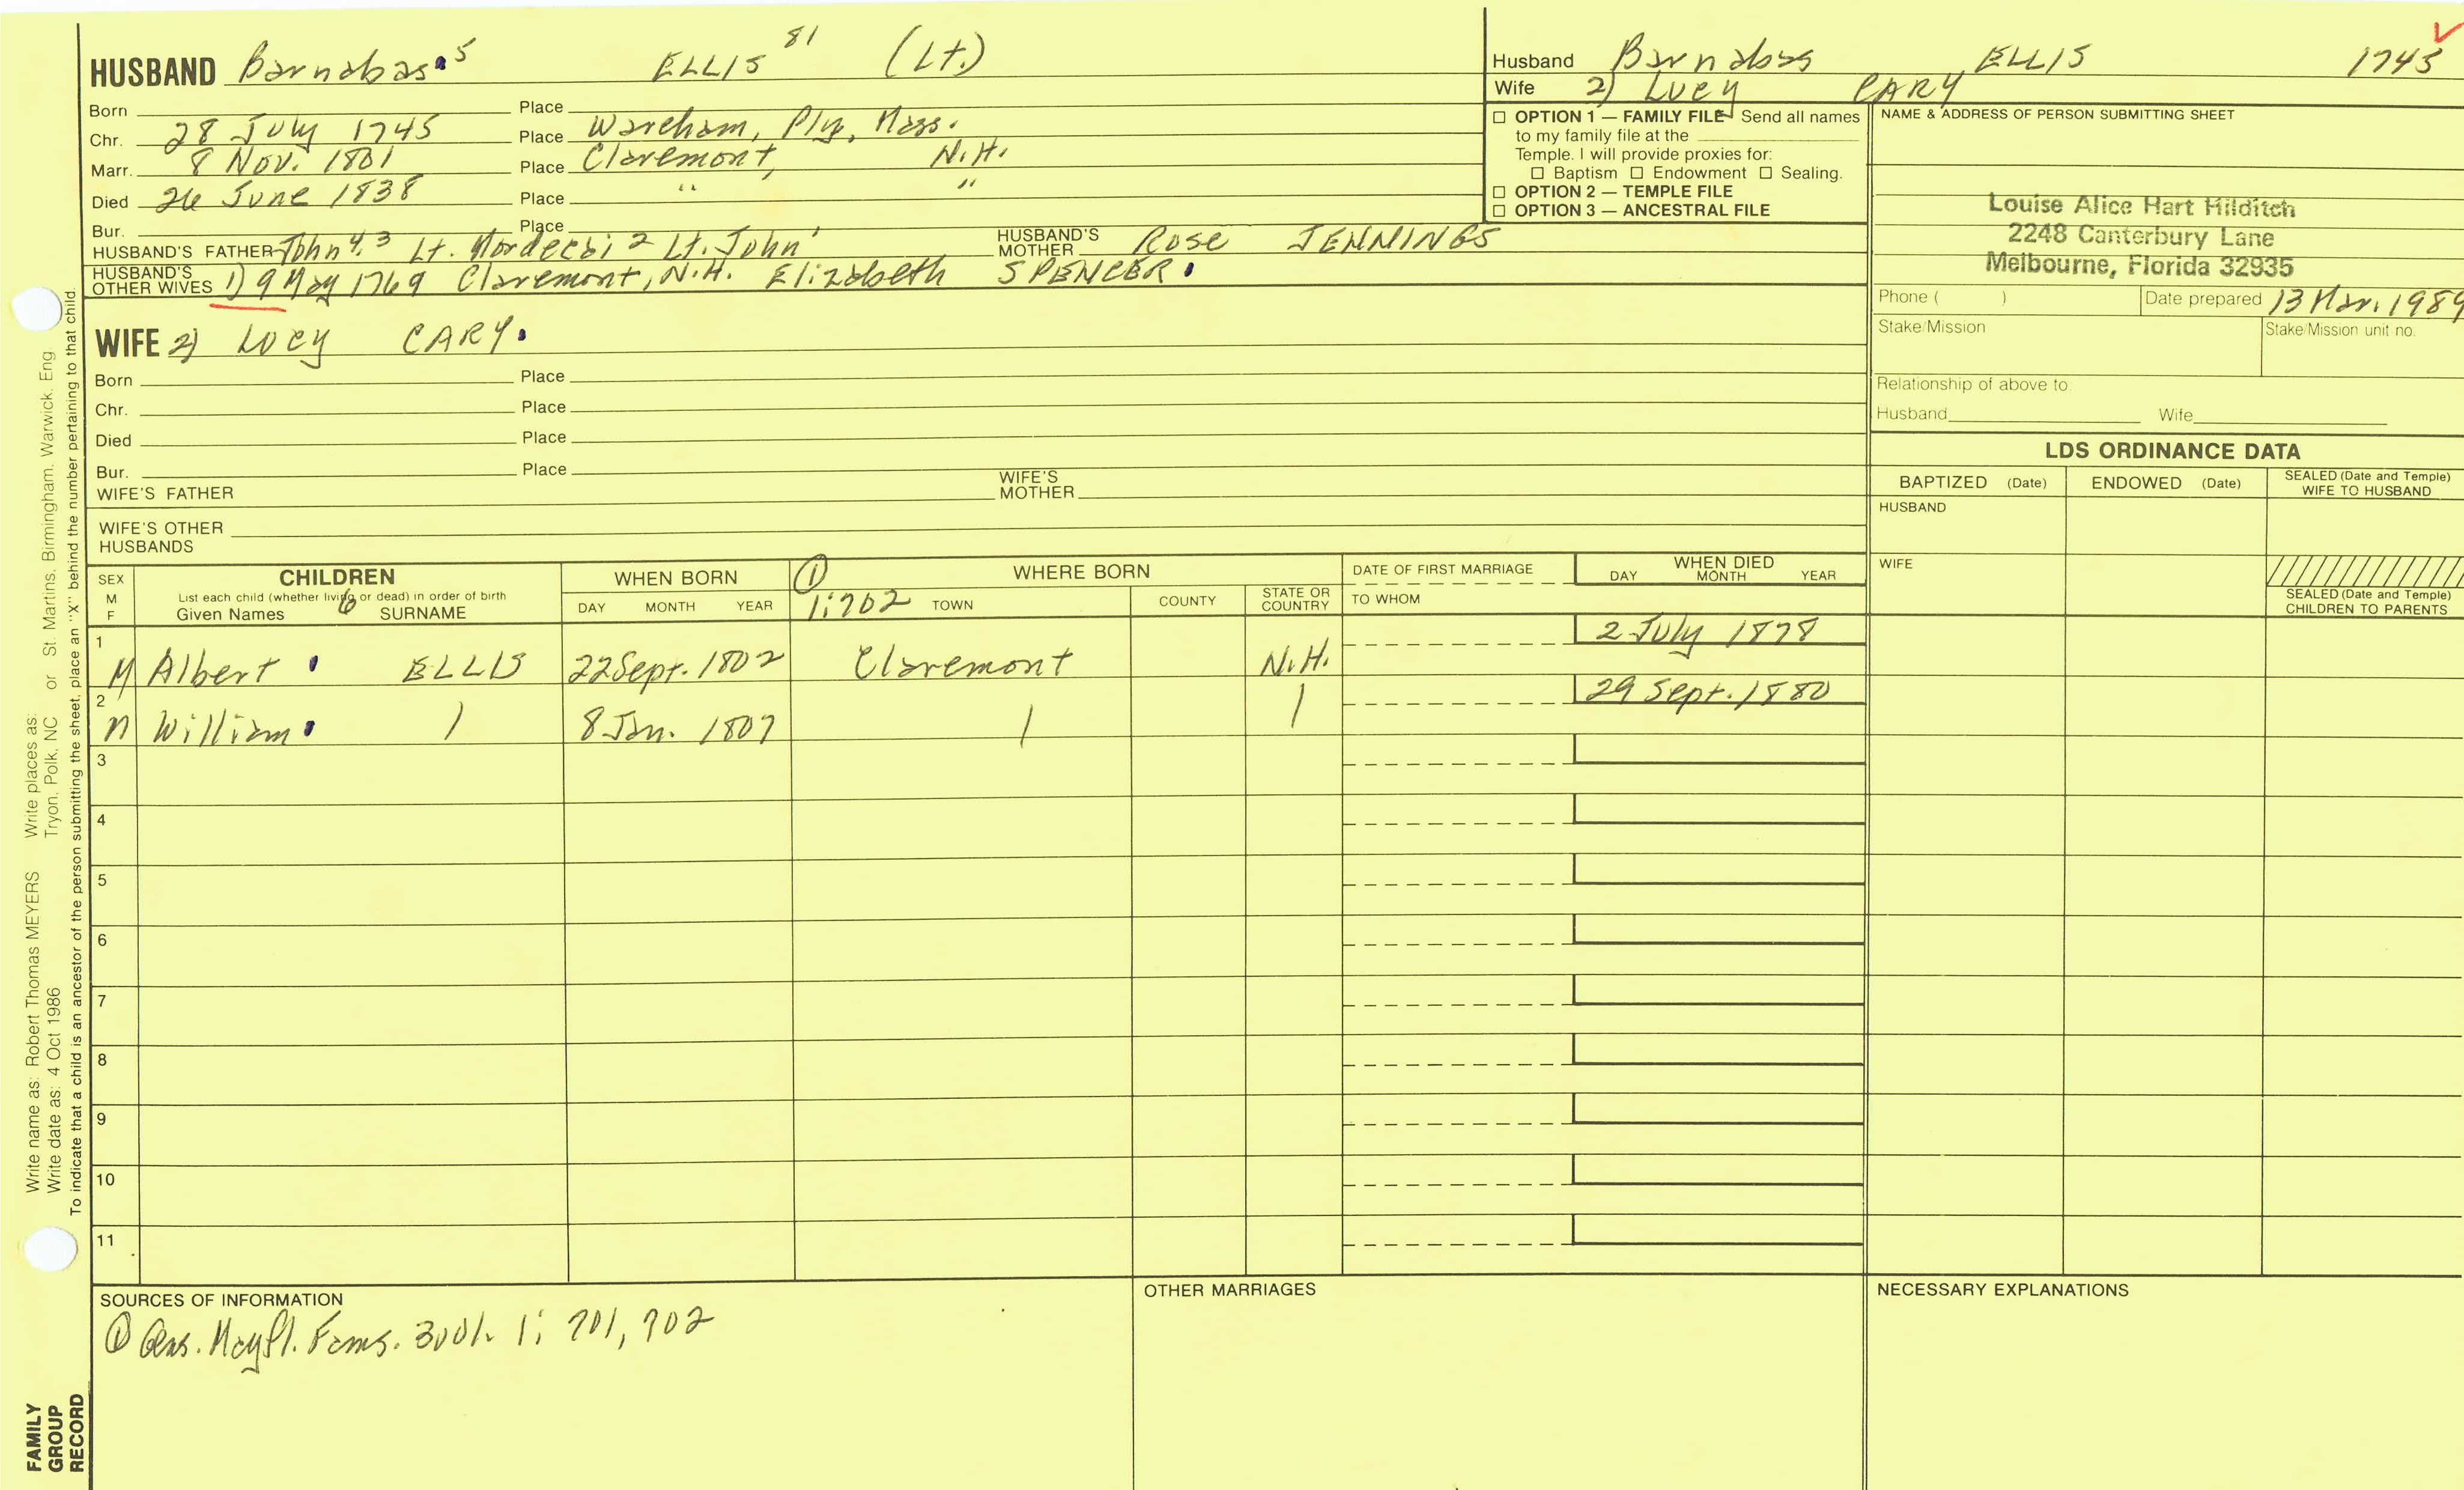 HUSBAND Barnabas 5 ELLIS 81 (Lt.)
Born Place
Chr. 28 July 1745 Place Wareham, Ply, Mass.
Marr. 8 Nov. 1801 Place Claremont, N.H.
Died 26 June 1838 Place " "
Bur. Place
HUSBAND'S FATHER John 4,3 Lt. Mordecai 2 Lt. John 1 HUSBAND'S MOTHER Rose JENNINGS
HUSBAND'S OTHER WIVES 1) 9 May 1769 Claremont, N.H. Elizabeth SPENCER
WIFE 2) Lucy CARY
Born Place
Chr. Place
Died Place
Bur. Place
WIFE'S FATHER WIFE'S MOTHER
WIFE'S OTHER HUSBANDS
Husband Barnabas ELLIS 1745
Wife 2) Lucy CARY
OPTION 1 — FAMILY FILE Send all names
to my family file at the
Temple. I will provide proxies for:
Baptism Endowment Sealing.
OPTION 2 — TEMPLE FILE
OPTION 3 — ANCESTRAL FILE
NAME & ADDRESS OF PERSON SUBMITTING SHEET
Louise Alice Hart Hilditch
2248 Canterbury Lane
Melbourne, Florida 32935
Phone ( ) Date prepared 13 Mar. 1989
Stake/Mission Stake/Mission unit no.
Relationship of above to
Husband Wife
LDS ORDINANCE DATA
BAPTIZED (Date) ENDOWED (Date) SEALED (Date and Temple) WIFE TO HUSBAND
HUSBAND
WIFE
SEALED (Date and Temple)
CHILDREN TO PARENTS
SEX M F
CHILDREN
List each child (whether living or dead) in order of birth
Given Names SURNAME
WHEN BORN
DAY MONTH YEAR
① WHERE BORN
1:702 TOWN COUNTY STATE OR COUNTRY
DATE OF FIRST MARRIAGE
TO WHOM
WHEN DIED
DAY MONTH YEAR
1 M Albert ELLIS 22 Sept. 1802 Claremont N.H. 2 July 1878
2 M William 8 Jan. 1807 29 Sept. 1880
3
4
5
6
7
8
9
10
11
SOURCES OF INFORMATION
① Gens. Mayfl. Fams. 3vol. 1: 701, 702
OTHER MARRIAGES
NECESSARY EXPLANATIONS
Write name as: Robert Thomas MEYERS Write places as: St. Martins, Birmingham, Warwick, Eng.
Write date as: 4 Oct 1986 Tryon, Polk, NC or
To indicate that a child is an ancestor of the person submitting the sheet, place an "X" behind the number pertaining to that child.
FAMILY
GROUP
RECORD